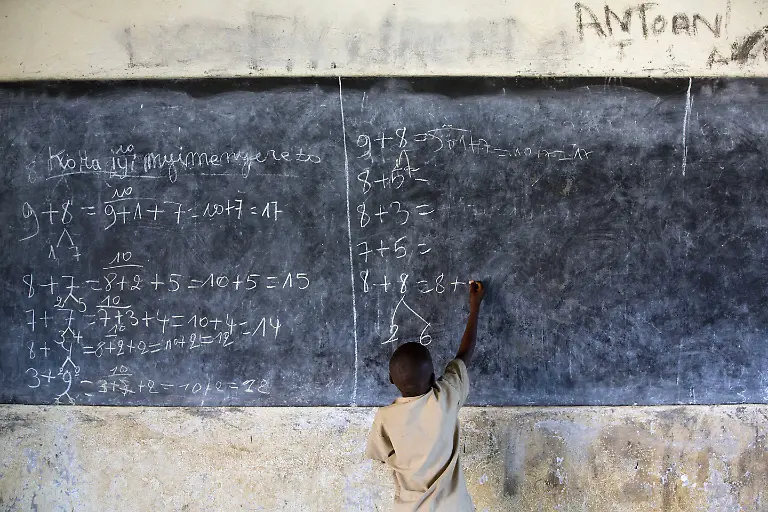 ANTOAN
Kora iyi myimenyereto
10
9+8 = 9+1+7 = 10+7 = 17
1 7
10
8+7 = 8+2+5 = 10+5 = 15
2 5
10
7+7 = 7+3+4 = 10+4 = 14
3 4
10
8+4 = 8+2+2 = 10+2 = 12
10
3+9 =
9+8 =
8+5 =
8+3 =
7+5 =
8+8 = 8+
2 6